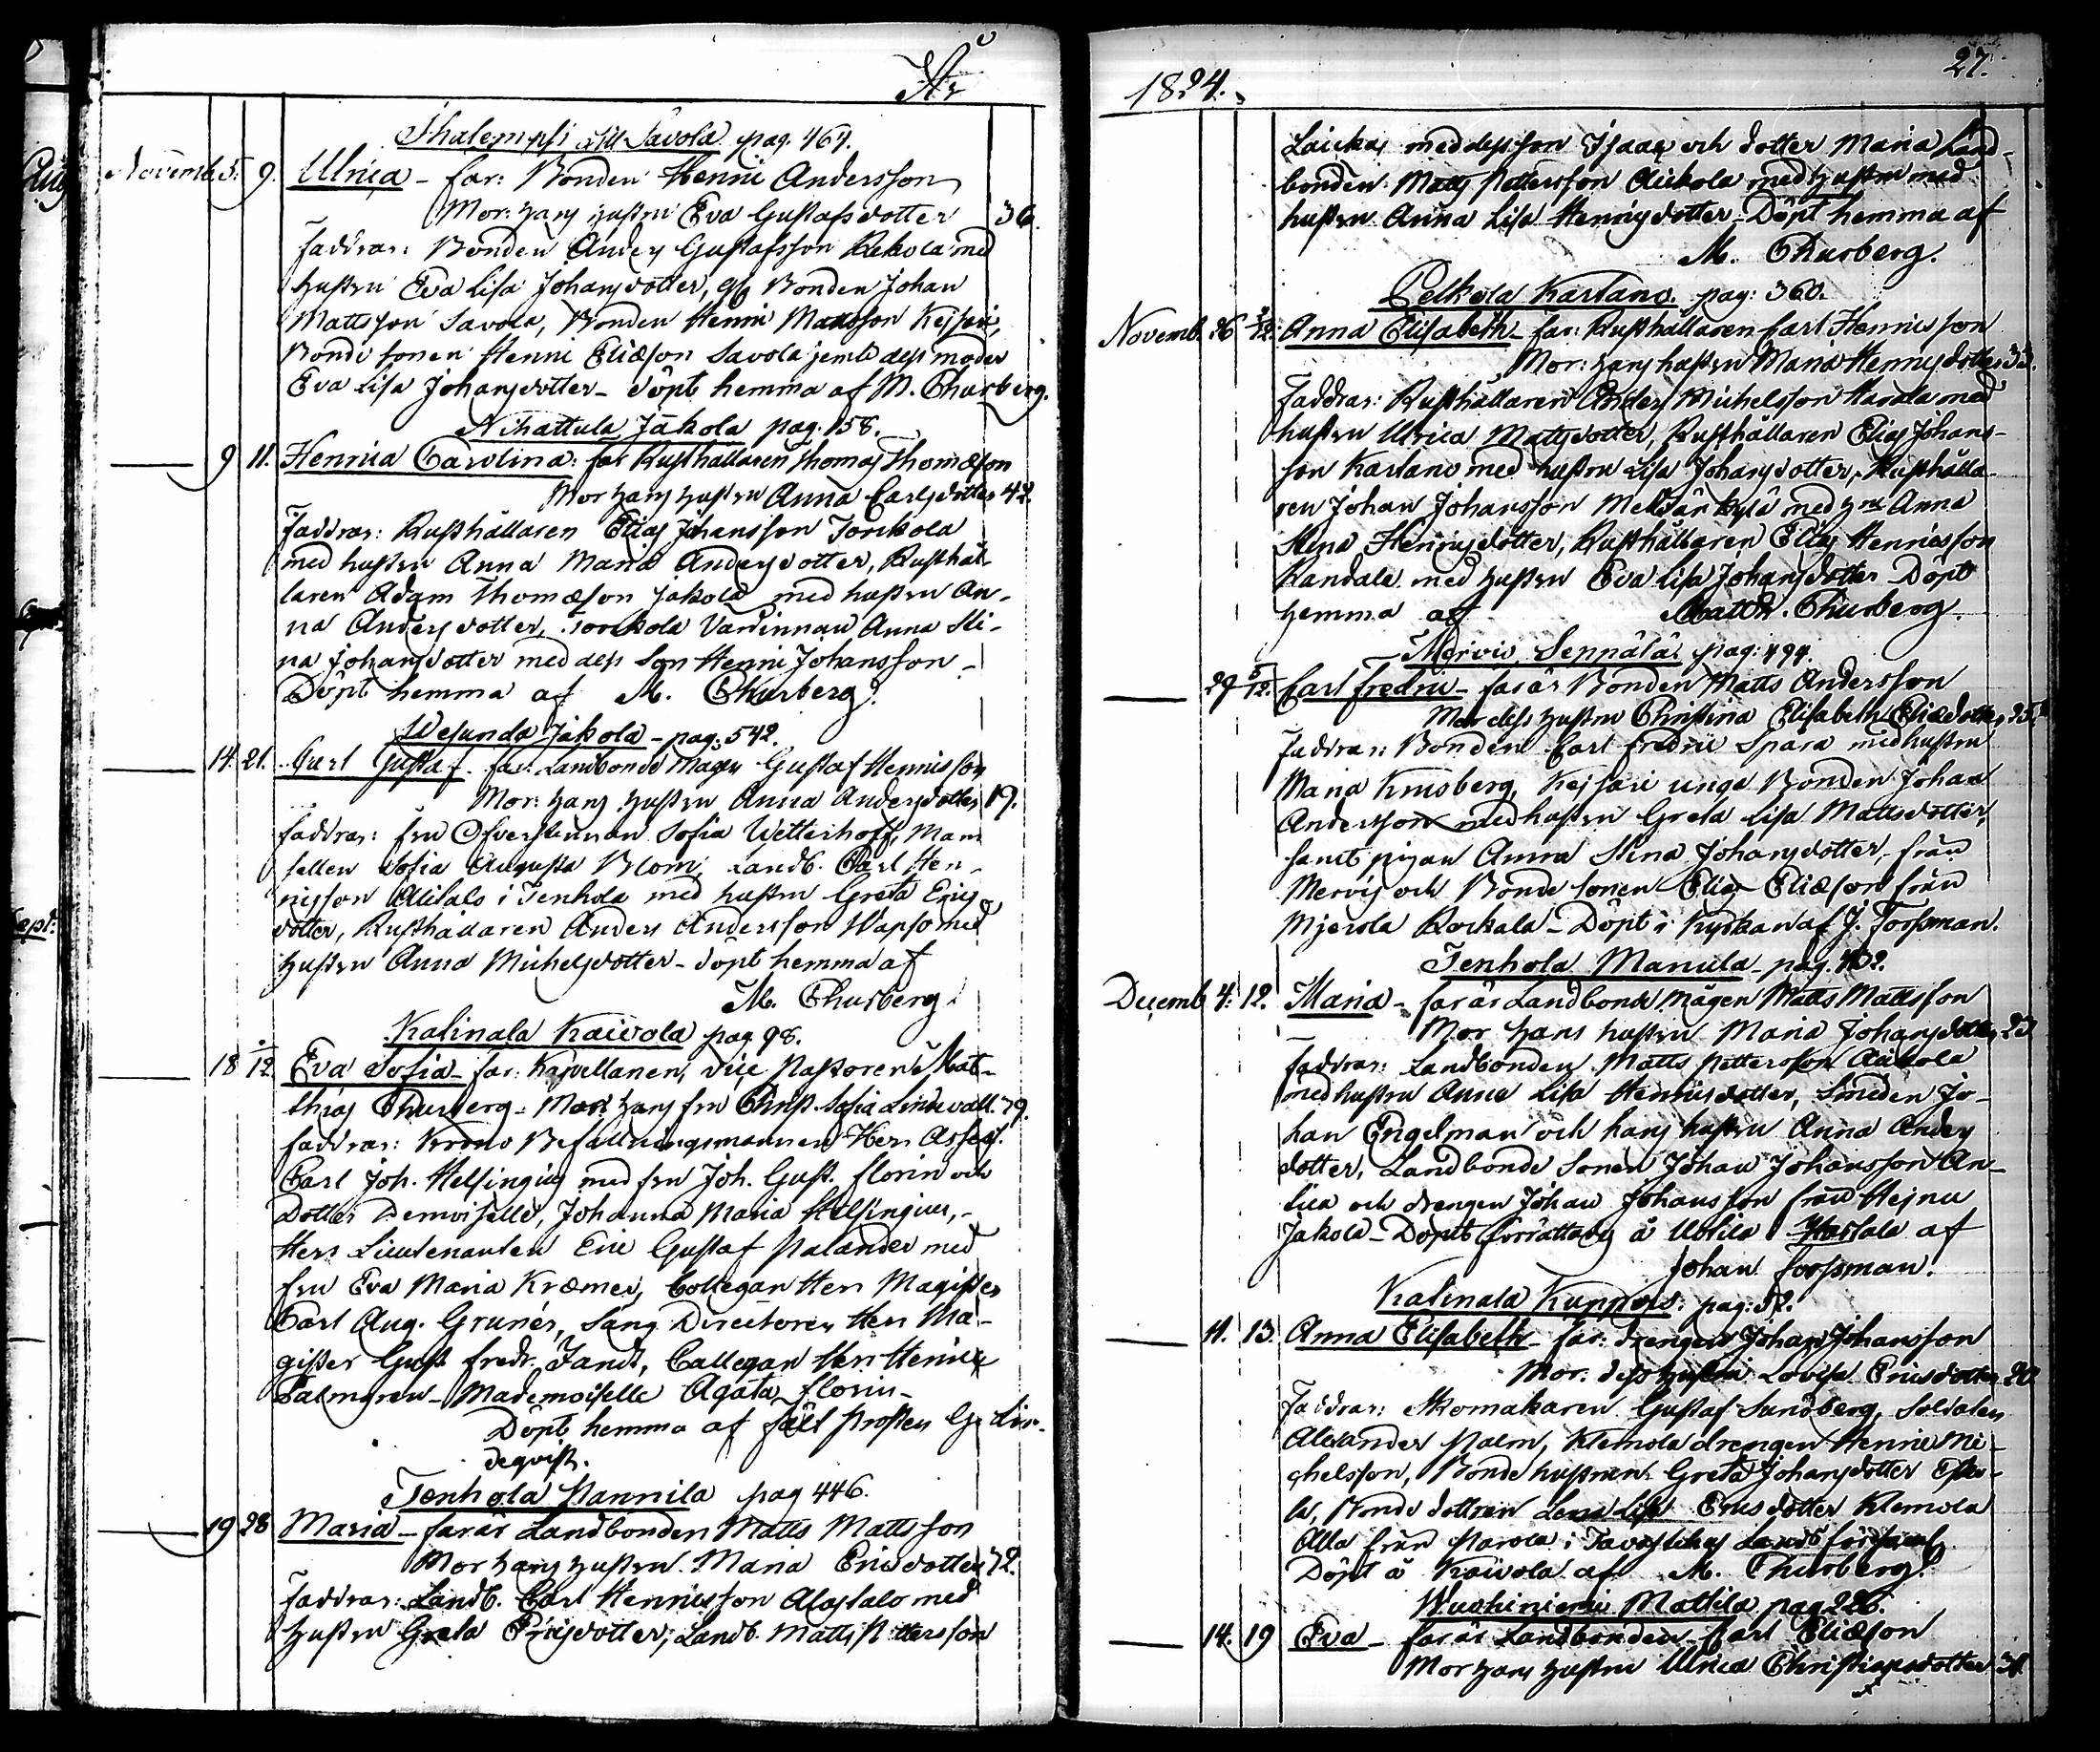 År
Ihalempsi Lill Savola pag. 464.
Novemb. 5. 9. Ulrica - far: Bonden Henric Andersson
Mor: hans hustru Eva Gustafsdotter 36.
Faddrar: Bonden Anders Gustafsson Rekola med
hustru Eva Lisa Johansdotter, Bonden Johan
Mattsson Savola, Bonden Henric Mattsson Kejsari,
Bonde sonen Henric Eliæson Savola jemte dess moder
Eva Lisa Johansdotter - döpt hemma af M. Churberg.
Nihattula Jakola pag. 158.
9 11. Henrica Carolina: far Rusthållaren Thomas Thomæson
Mor hans hustru Anna Carlsdotter 42.
Faddrar: Rusthållaren Elias Johansson Torckola
med hustru Anna Maria Andersdotter, Rusthål-
laren Adam Thomæson Jakola med hustru An-
na Andersdotter, Torckola Värdinnan Anna Sti-
na Johansdotter med dess Son Henric Johansson -
Döpt hemma af M. Churberg.
Wesunda Jakola - pag. 542.
14. 21. Carl Gustaf. far: Landbonde Mågen Gustaf Hennisson
Mor: hans hustru Anna Andersdotter 19.
Faddrar: Fru Öfverstinnan Sofia Wetterhoff, Mam-
sellen Sofia Augusta Blom, Landb. Carl Hen-
nisson Alitalo i Tenhola med hustru Greta Erics
dotter, Rusthållaren Anders Andersson Wapso med
hustru Anna Michelsdotter - döpt hemma af
M. Churberg.
Katinala Kaivola pag 98.
18 /12 Eva Sofia - far: Kapellanen, vice Pastoren Mat-
thias Churberg - Mor: hans fru Christ. Sofia Lindevall. 39.
Faddrar: Krono Befallningsmannen Herr Assess.
Carl Joh. Helsingius med fru Joh. Gust. Florin och
Dotter Demoiselle, Johanna Maria Helsingius, -
Herr Lieutenanten Eric Gustaf Palander med
fru Eva Maria Kræmer, Collegan Herr Magister
Carl Aug. Grunér, Sång Directoren Herr Ma-
gister Gust. Fredr. Tandt, Collegan Herr Henric
Palmgren - Mademoiselle Agata Florin -
Döpt hemma af fält Prosten G. Lin-
deqvist.
Tenhola Pannila pag 446.
19 28 Maria - far är Landbonden Matts Mattsson
Mor hans hustru Maria Ericsdotter 32.
Faddrar: Landb. Carl Hennisson Alastalo med
hustru Greta Ericsdotter, Landb. Matts Pettersson
1824. 27.
Laickas med dess son Isaac och dotter Maria Land-
bonden Matts Pettersson Aickola med hustru med
hustru Anna Lisa Hennisdotter - Döpt hemma af
M. Churberg.
Pelkola Kartano. pag: 360.
Novemb. 26 /12. Anna Elisabeth - far: Rusthållaren Carl Hennisson
Mor: hans hustru Maria Hennisdotter 33.
Faddrar: Rusthållaren Anders Michelsson Harala med
hustru Ulrica Mattsdotter, Rusthållaren Elias Johans-
son Kartano med hustru Lisa Johansdotter, Rusthålla-
ren Johan Johansson Metsänkylä med hru Anna
Stina Hennisdotter, Rusthållaren Elias Hennisson
Randala med hustru Eva Lisa Johansdotter Döpt
hemma af Matth. Churberg.
Mervis Seppälä pag: 494.
29 5/12. Carl Fredric - far är Bonden Matts Andersson
Mor dess hustru Christina Elisabeth Eliædotter 25.
Faddrar: Bonden Carl Fredric Spara med hustru
Maria Krusberg, Kejsari unga Bonden Johan
Andersson med hustru Greta Lisa Mattsdotter,
samt pigan Anna Stina Johansdotter, från
Mervis och Bonde sonen Elias Eliæson från
Mjerola Rockala - Döpt i Kyrkan af J. Forssman.
Tenhola Manula - pag. 432.
Decemb. 4. 12. Maria - far är Landbonde mågen Matts Mattsson
Mor hans hustru Maria Johansdotter 23
Faddrar: Landbonden Matts Pettersson Aickola
med hustru Anna Lisa Hennisdotter, Smeden Jo-
han Engelman och hans hustru Anna Anders
dotter, Landbonde Sonen Johan Johansson An-
tila och drengen Johan Johansson från Hejnu
Jakola - Döpelt förrättades å Uotila Hartala af
Johan Forssman.
Katinala Kuppois: pag: 52.
11. 13. Anna Elisabeth - far: drengen Johan Johansson
Mor. dess hustru Lovisa Ericsdotter 20.
Faddrar: Skomakaren Gustaf Sandberg, Soldaten
Alexander Palm, Klemola drengen Henric Mi-
chelsson, Bonde hustrun Greta Johansdotter
Bonde dottren Lena Lisa Ericsdotter Klemola
Alla från Parola i Tavastehus Lands församl.
Döpt å Kaivola af M. Churberg.
Wuohiniemi Mattila pag 226.
14. 19 Eva - far är Landbonden Carl Eliæson
Mor hans hustru Ulrica Christiansdotter 31.